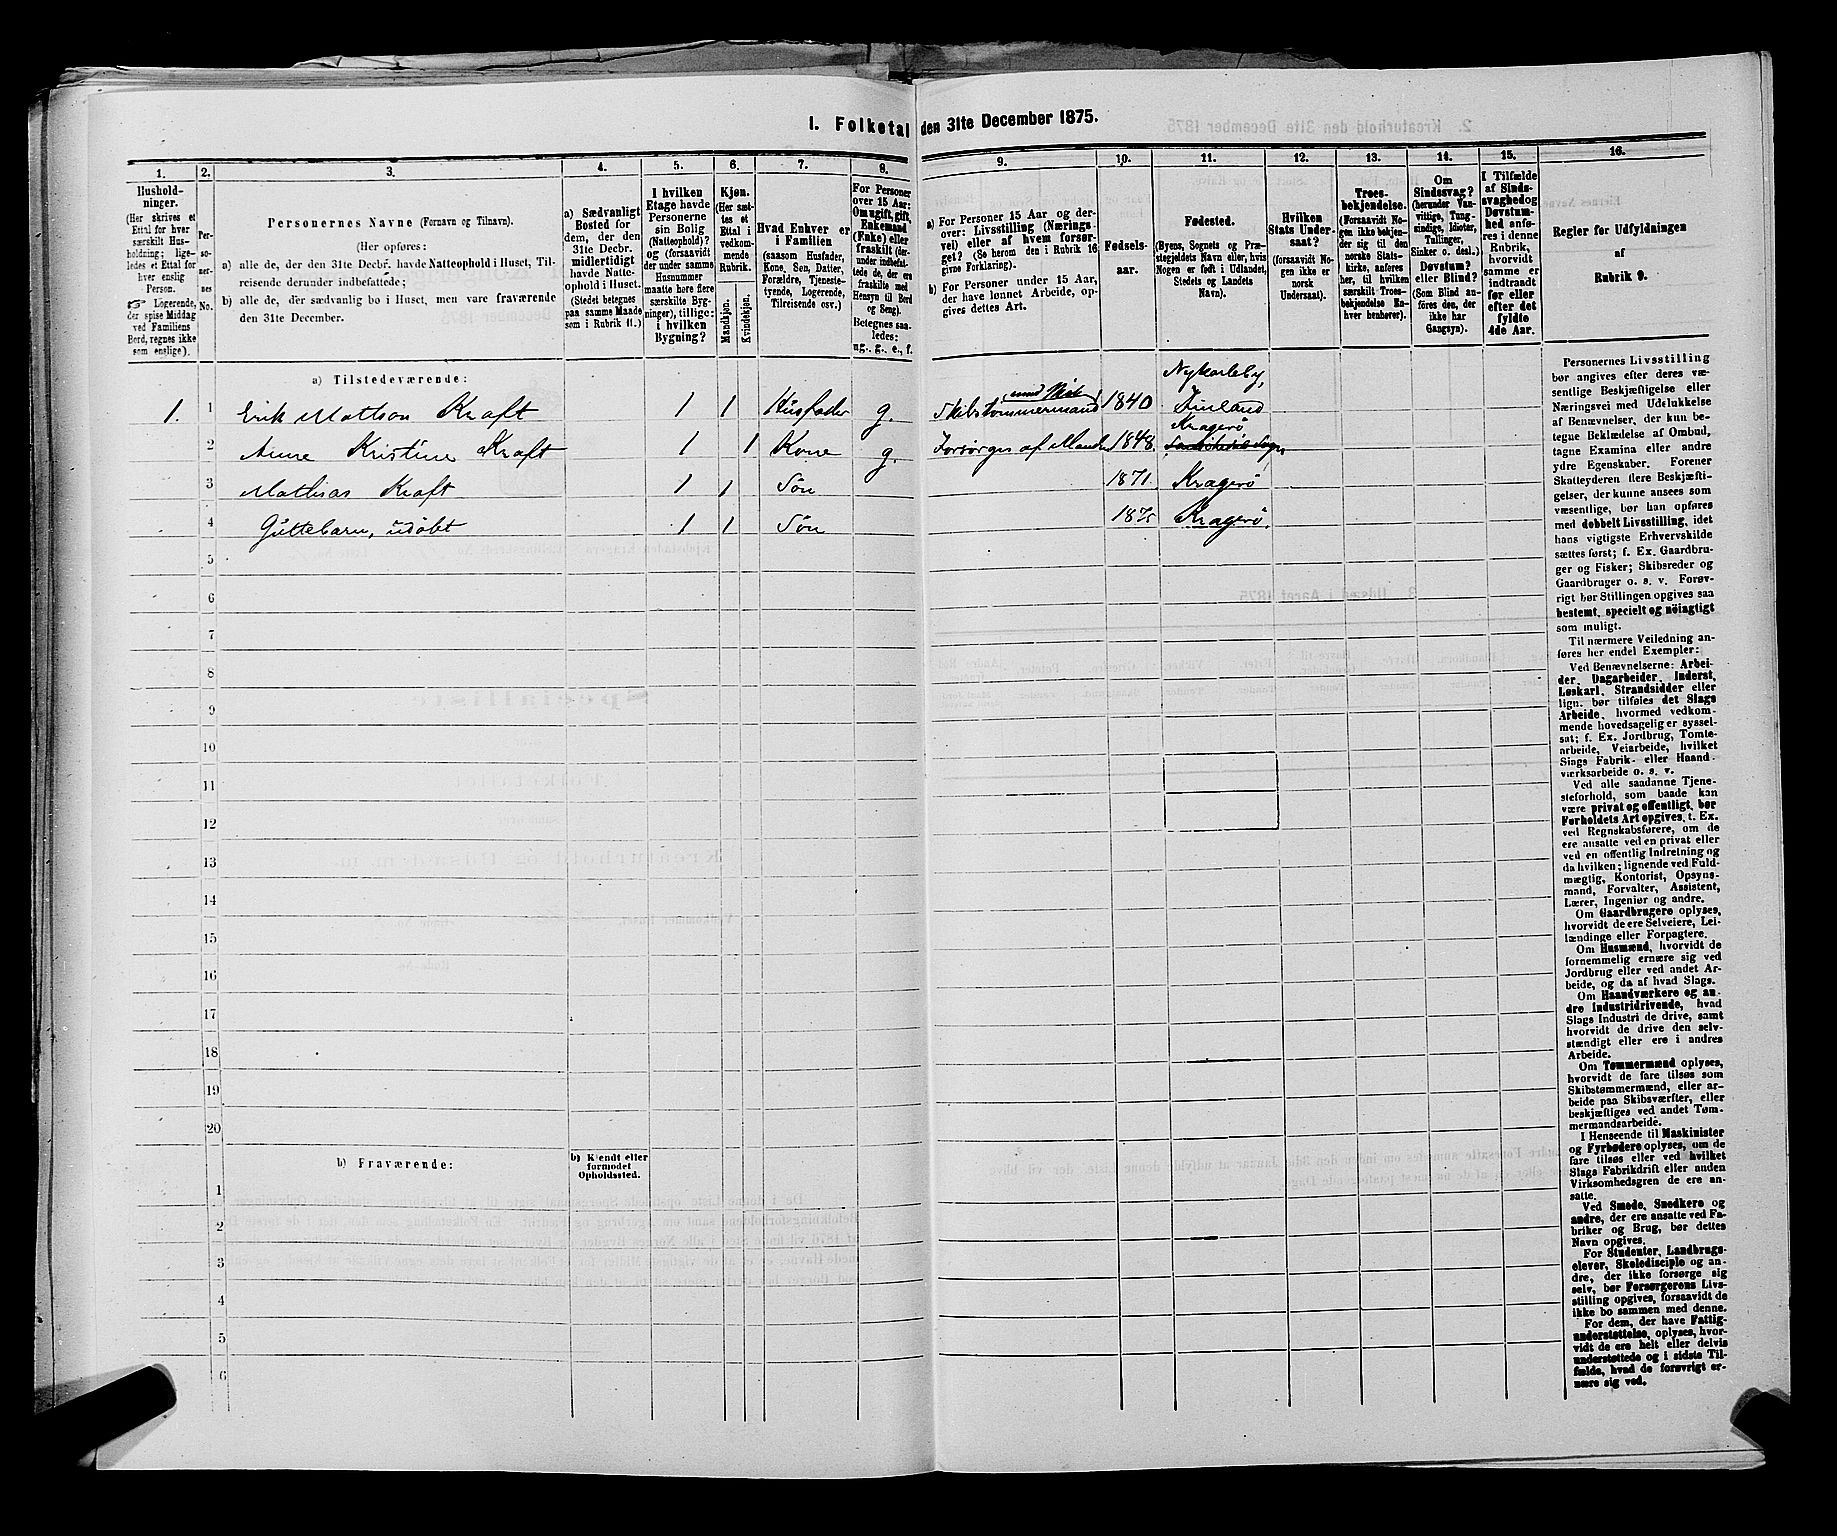 I. Folketal den 31te December 1875.
1. 2. 3. 4. 5. 6. 7. 8. 9. 10. 11. 12. 13. 14. 15. 16.
Hushold-
ninger.
(Her skrives et
Ettal for hver
særskilt Hus-
holdning; lige-
ledes et Ettal for
hver enslig
Person.
☞ Logerende,
der spise Middag
ved Familiens
Bord, regnes ikke
som enslige).
Per-
so-
ner-
nes
No.
Personernes Navne (Fornavn og Tilnavn).
(Her opføres:
a) alle de, der den 31te Decbr. havde Natteophold i Huset, Til-
reisende derunder indbefattede;
b) alle de, der sædvanlig bo i Huset, men vare fraværende
den 31te December.
a) Sædvanligt
Bosted for
dem, der den
31te Decbr.
midlertidigt
havde Natte-
ophold i Huset.
(Stedet betegnes
paa samme Maade
som i Rubrik 11.)
I hvilken
Etage havde
Personerne
sin Bolig
(Natteophold)?
og (forsaavidt
der under samme
Husnummer
maatte høre flere
særskilte Byg-
ninger), tillige:
i hvilken
Bygning?
Kjøn.
(Her sæt-
tes et
Ettal i
vedkom-
mende
Rubrik.
Mandkjøn.
Kvindekjøn.
Hvad Enhver er
i Familien
(saasom Husfader,
Kone, Søn, Datter,
Forældre, Tjeneste-
tyende, Logerende,
Tilreisende osv.)
For Personer
over 15 Aar:
Om ugift, gift,
Enkemand
(Enke) eller
fraskilt (der-
under indbefat-
tede de, der ere
fraskilte med
Hensyn til Bord
og Seng).
Betegnes saa-
ledes:
ug., g., e., f.
a) For Personer 15 Aar og der-
over: Livsstilling (Nærings-
vei) eller af hvem forsør-
get? (Se herom den i Rubrik 16
givne Forklaring).
b) For Personer under 15 Aar,
der have lønnet Arbeide, op-
gives dettes Art.
Fødsels-
aar.
Fødested.
(Byens, Sognets og Præ-
stegjeldets Navn eller, hvis
Nogen er født i Udlandet,
Stedets og Landets
Navn).
Hvilken
Stats Under-
saat?
(forsaavidt No-
gen ikke er
norsk
Undersaat).
Troes-
bekjendelse.
(Forsaavidt No-
gen ikke bekjen-
der sig til den
norske Stats-
kirke, anføres
her, til hvilken
særskilt Troes-
bekjendelse En-
hver henhører).
Om
Sindssvag?
(herunder Van-
vittige, Tung-
sindige, Idioter,
Tullinger,
Sinker o. desl.)
Døvstum?
eller Blind?
(Som Blind an-
føres den, der
ikke har
Gangsyn).
I Tilfælde
af Sinds-
svaghed og
Døvstum-
hed anfø-
res i denne
Rubrik,
hvorvidt
samme er
indtraadt
før eller
efter det
fyldte
4de Aar.
Regler for Udfyldningen
af
Rubrik 9.
a) Tilstedeværende:
Nykarleby,
1. 1 Erik Mattson Kraft 1 1 Husfader g. Skibstømmermand 1840 Finland
Kragerø
2 Anne Kristine Kraft 1 1 Kone g. Forsørges af Manden 1848.
3 Mathias Kraft 1 1 Søn 1871. Kragerø
4 Guttebarn, udøbt 1 1 Søn 1875 Kragerø.
5
6
7
8
9
10
11
12
13
14
15
16
17
18
19
20
b) Fraværende:
b) Kjendt eller
formodet
Opholdssted.
1
2
3
4
5
6
Personernes Livsstilling
bør angives efter deres væ-
sentlige Beskjæftigelse eller
Næringsvei med Udelukkelse
af Benævnelser, der kun be-
tegne Beklædelse af Ombud,
tagne Examina eller andre
ydre Egenskaber. Forener
Skatteyderen flere Beskjæfti-
gelser, der kunne ansees som
væsentlige, bør han opføres
med dobbelt Livsstilling, idet
hans vigtigste Erhvervskilde
sættes først; f. Ex. Gaardbru-
ger og Fisker; Skibsreder og
Gaardbruger o. s. v. Forøv-
rigt bør Stillingen opgives saa
bestemt, specielt og nöiagtigt
som muligt.
Til nærmere Veiledning an-
føres her endel Exempler:
Ved Benævnelserne: Arbei-
der, Dagarbeider, Inderst,
Løskarl, Strandsidder eller
lign. bør tilføies det Slags
Arbeide, hvormed vedkom-
mende hovedsagelig er syssel-
sat; f. Ex. Jordbrug, Tomte-
arbeide, Veiarbeide, hvilket
Slags Fabrik- eller Haand-
værksarbeide o. s. v.
Ved alle saadanne Tjene-
steforhold, som baade kan
være privat og offentligt, bør
Forholdets Art opgives, t. Ex.
ved Regnskabsførere, om de
ere ansatte ved en privat eller
ved en offentlig Indretning og
da hvilken; lignende ved Fuld-
mægtig, Kontorist, Opsyns-
mand, Forvalter, Assistent,
Lærer, Ingeniør og andre.
Om Gaardbrugere oplyses,
hvorvidt de ere Selveiere, Lei-
lændinge eller Forpagtere.
Om Husmænd, hvorvidt de
fornemmelig ernære sig ved
Jordbrug eller ved andet Ar-
beide, og da af hvad Slags.
Om Haandværkere og an-
dre Industridrivende, hvad
Slags Industri de drive, samt
hvorvidt de drive den selv-
stændigt eller ere i andres
Arbeide.
Om Tømmermænd oplyses,
hvorvidt de fare tilsøs som
Skibstømmermænd, eller ar-
beide paa Skibsværfter, eller
beskjæftiges ved andet Tøm-
mermandsarbeide.
I Henseende til Maskinister
og Fyrbødere oplyses, om de
fare tilsøs eller ved hvilket
Slags Fabrikdrift eller anden
Virksomhedsgren de ere an-
satte.
Ved Smede, Snedkere og
andre, der ere ansatte ved Fa-
briker og Brug, bør dettes
Navn opgives.
For Studenter, Landbrugs-
elever, Skoledisciple og an-
dre, der ikke forsørge sig
selv, bør Forsørgerens Livs-
stilling opgives, forsaavidt de
ikke bo sammen med denne.
For dem, der have Fattig-
understøttelse, oplyses, hvor-
vidt de ere helt eller delvis
understøttede og i sidste Til-
fælde, hvad de forøvrigt er-
nære sig ved.